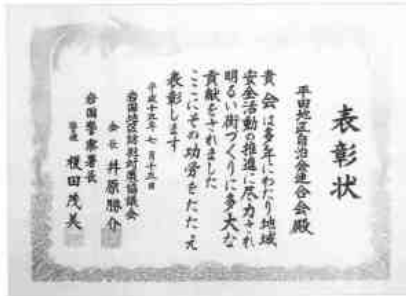 表彰状
平田地区自治会連合会殿
貴会は多年にわたり地域
安全活動の推進に尽力され
明るい街づくりに多大な
貢献をされました
ここにその功労をたたえ
表彰します
平成十九年七月十三日
岩国地区防犯対策協議会
会長 井原勝介
岩国警察署長
警視 榎田茂美